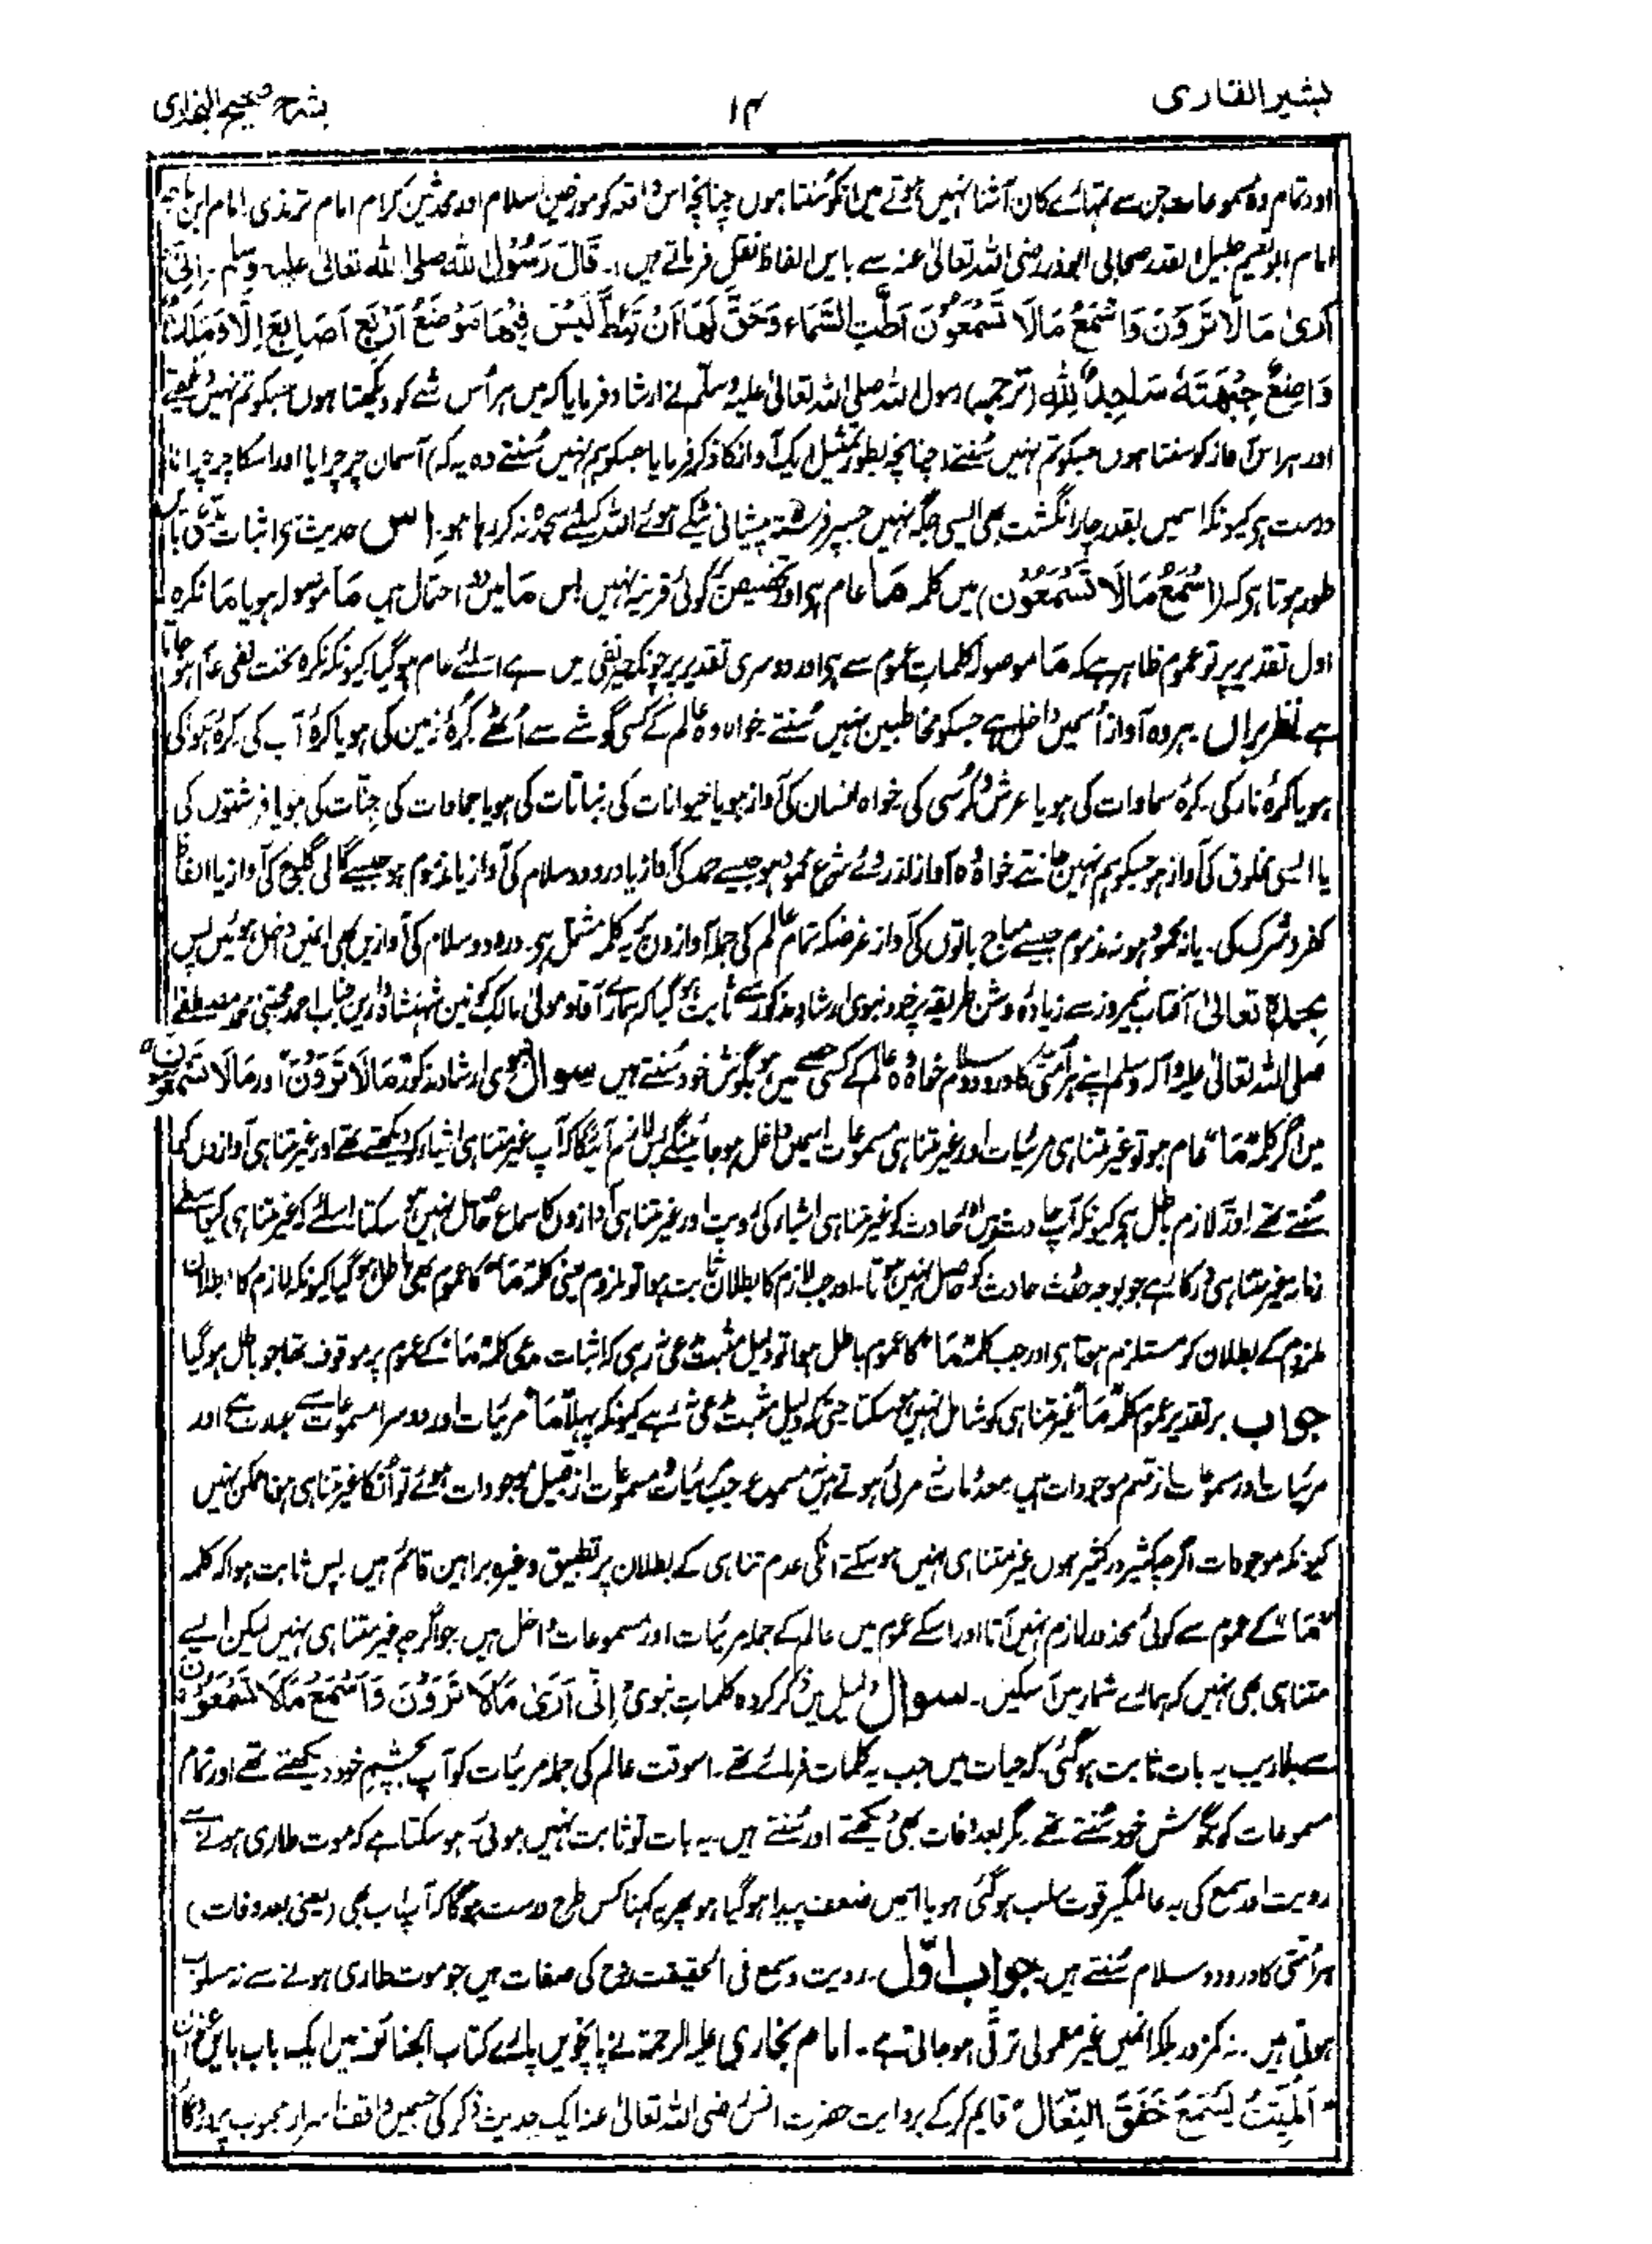 بشیر القاری
۱۴
بشرح صحیح البخاری
اور تمام وہ مسموعات جن سے تمہارے کان آشنا نہیں ہوتے میں انکو سُنتا ہوں چنانچہ اس واقعہ کو مورخین اسلام اور محدثین کرام امام ترمذی امام ابن ماجہ
امام ابو نعیم جلیل القدر صحابی ابوذر رضی اللہ تعالیٰ عنہ سے بایں الفاظ نقل فرماتے ہیں:۔ قَالَ رَسُوْلُ اللہ صلی اللہ تعالیٰ علیہ وسلم۔ اِنِّیْ
اَرٰی مَا لَا تَرَوْنَ وَاَسْمَعُ مَالَا تَسْمَعُوْنَ اَطَّتِ السَّمَاء وَحَقَّ لَهَا اَنْ تَئِطَّ لَیْسَ فِیْهَا مَوْضَعُ اَرْبَعِ اَصَابِعَ اِلَّا وَمَلَكٌ
وَاضِعٌ جِبْهَتَهٗ سَاجِدًا لِلّٰهِ (ترجمہ) رسول اللہ صلی اللہ تعالیٰ علیہ وسلم نے ارشاد فرمایا کہ میں ہر اُس شے کو دیکھتا ہوں جسکو تم نہیں دیکھتے
اور ہر اس آواز کو سنتا ہوں جسکو تم نہیں سُنتے (چنانچہ بطور تمثیل ایک آواز کا ذکر فرمایا جسکو ہم نہیں سُنتے وہ یہ کہ) آسمان چرچرایا اور اسکا چرچرانا
درست ہے کیونکہ اسمیں بقدر چار انگشت بھی ایسی جگہ نہیں جسپر فرشتہ پیشانی ٹیکے ہوئے اللہ کیلئے سجدہ نہ کر رہا ہو۔ اس حدیث سے اثبات مدعی بایں
طور ہوتا ہے کہ (اَسْمَعُ مَالَا تَسْمَعُوْن) میں کلمہ مَا عام ہے اور تخصیص کا کوئی قرینہ نہیں اس مَا میں دو احتمال ہیں مَا موصولہ ہو یا مَا نکرہ
اول تقدیر پر تو عموم ظاہر ہے کہ مَا موصولہ کلمات عموم سے ہے اور دوسری تقدیر پر چونکہ حیز نفی میں ہے اسلئے عام ہوگیا کیونکہ نکرہ تحت نفی عام ہو جاتا
ہے نظر براں ہر وہ آواز اسمیں داخل ہے جسکو مخاطبین نہیں سُنتے خواہ وہ عالم کے کسی گوشے سے اُٹھے کرۂ زمین کی ہو یا کرۂ آب کی کرۂ ہوا کی
ہو یا کرۂ نار کی۔ کرۂ سماوات کی ہو یا عرش و کُرسی کی خواہ انسان کی آواز ہو یا حیوانات کی نباتات کی ہو یا جمادات کی جنّات کی ہو یا فرشتوں کی
یا ایسی مخلوق کی آواز ہو جسکو ہم نہیں جانتے خواہ وہ آواز از روئے شرع محمود ہو جیسے حمد کی آواز یا درود و سلام کی آواز یا مذموم ہو جیسے گالی گلوچ کی آواز یا الفاظ
کفر و شرک کی۔ یا نہ محمود ہو نہ مذموم جیسے مباح باتوں کی آواز غرضکہ تمام عالم کی جملہ آوازوں کو یہ کلمہ مشتمل ہے۔ درود و سلام کی آوازیں بھی انمیں داخل ہوئیں پس
بحمدہٖ تعالیٰ آفتاب نیمروز سے زیادہ روشن طریقہ پر خود نبوی ارشاد مذکور سے ثابت ہوگیا کہ ہمارے آقا و مولیٰ مالک کونین شہنشاہ دارین جناب احمد مجتبیٰ محمد مصطفےٰ
صلی اللہ تعالیٰ علیہ وآلہ وسلم اپنے ہر اُمتی کا درود و سلام خواہ وہ عالم کے کسی حصے میں ہو بگوش خود سُنتے ہیں سوال نبوی ارشاد مذکورہ مَالَا تَرَوْنَ اور مَالَا تَسْمَعُوْنَ
میں اگر کلمۂ "مَا" عام ہو تو غیر متناہی مرئیات اور غیر متناہی مسموعات اسمیں داخل ہو جائینگے پس لازم آئیگا کہ آپ غیر متناہی اشیاء کو دیکھتے تھے اور غیر متناہی آوازوں کو
سُنتے تھے اور لازم باطل ہے کیونکہ آپ حادث ہیں اور حادث کو غیر متناہی اشیاء کی رویت اور غیر متناہی آوازوں کا سماع حاصل نہیں ہو سکتا اسلئے کہ غیر متناہی کیواسطے
زمانہ غیر متناہی درکار ہے جو بوجہ حدوث حادث کو حاصل نہیں ہوتا۔ اور جب لازم کا بطلان ثابت ہوا تو ملزوم یعنی کلمۂ "مَا" کا عموم بھی باطل ہوگیا کیونکہ لازم کا بطلان
ملزوم کے بطلان کو مستلزم ہوتا ہے اور جب کلمۂ "مَا" کا عموم باطل ہوا تو دلیل مثبت مدعی نہ رہی کہ اثبات مدعی کلمۂ مَا کے عموم پر موقوف تھا جو باطل ہوگیا
جواب برتقدیر عموم کلمۂ "مَا" غیر متناہی کو شامل نہیں ہو سکتا حتیٰ کہ دلیل مثبت مدعی نہ رہے کیونکہ پہلا "مَا" مرئیات اور دوسرا مسموعات سے عبارت ہے اور
مرئیات اور مسموعات از قسم موجودات ہیں معدومات نہ مرئی ہوتے ہیں نہ مسموع جب مرئیات و مسموعات از قبیل موجودات ہوئے تو اُنکا غیر متناہی ہونا ممکن نہیں
کیونکہ موجودات اگرچہ کثیر در کثیر ہوں غیر متناہی نہیں ہو سکتے انکی عدم تناہی کے بطلان پر تطبیق وغیرہ براہین قائم ہیں۔ پس ثابت ہوا کہ کلمہ
"مَا" کے عموم سے کوئی محذور لازم نہیں آتا اور اسکے عموم میں عالم کے جملہ مرئیات اور مسموعات داخل ہیں جو اگرچہ غیر متناہی نہیں لیکن ایسے
متناہی بھی نہیں کہ ہمارے شمار میں آسکیں۔ سوال دلیل میں ذکر کردہ کلمات نبوی اِنِّیْ اَرَیٰ مَالَا تَرَوْنَ وَاَسْمَعُ مَالَا تَسْمَعُوْنَ
سے بلاریب یہ بات ثابت ہوگئی کہ حیات میں جب یہ کلمات فرمائے تھے۔ اسوقت عالم کی جملہ مرئیات کو آپ بچشم خود دیکھتے تھے اور تمام
مسموعات کو بگوش خود سُنتے تھے۔ مگر بعد وفات بھی دیکھتے اور سُنتے ہیں۔ یہ بات تو ثابت نہیں ہوئی۔ ہو سکتا ہے کہ موت طاری ہونے سے
رویت اور سمع کی یہ عالمگیر قوت سلب ہو گئی ہو یا اسمیں ضعف پیدا ہو گیا ہو پھر یہ کہنا کس طرح درست ہوگا کہ آپ اب بھی (یعنی بعد وفات)
ہر اُمتی کا درود و سلام سُنتے ہیں۔ جواب اوّل۔ رویت و سمع فی الحقیقت روح کی صفات ہیں جو موت طاری ہونے سے نہ مسلوب
ہوتی ہیں۔ نہ کمزور بلکہ انمیں غیر معمولی ترقی ہو جاتی ہے۔ امام بخاری علیہ الرحمۃ نے پانچویں پارے کتاب الجنائز میں ایک باب بایں عنوان
"اَلْمَیِّتُ یَسْمَعُ خَفْقَ النِّعَال" قایم کرکے بروایت حضرت انس رضی اللہ تعالیٰ عنہ ایک حدیث ذکر کی جسمیں واقف اسرار محبوب پروردگار